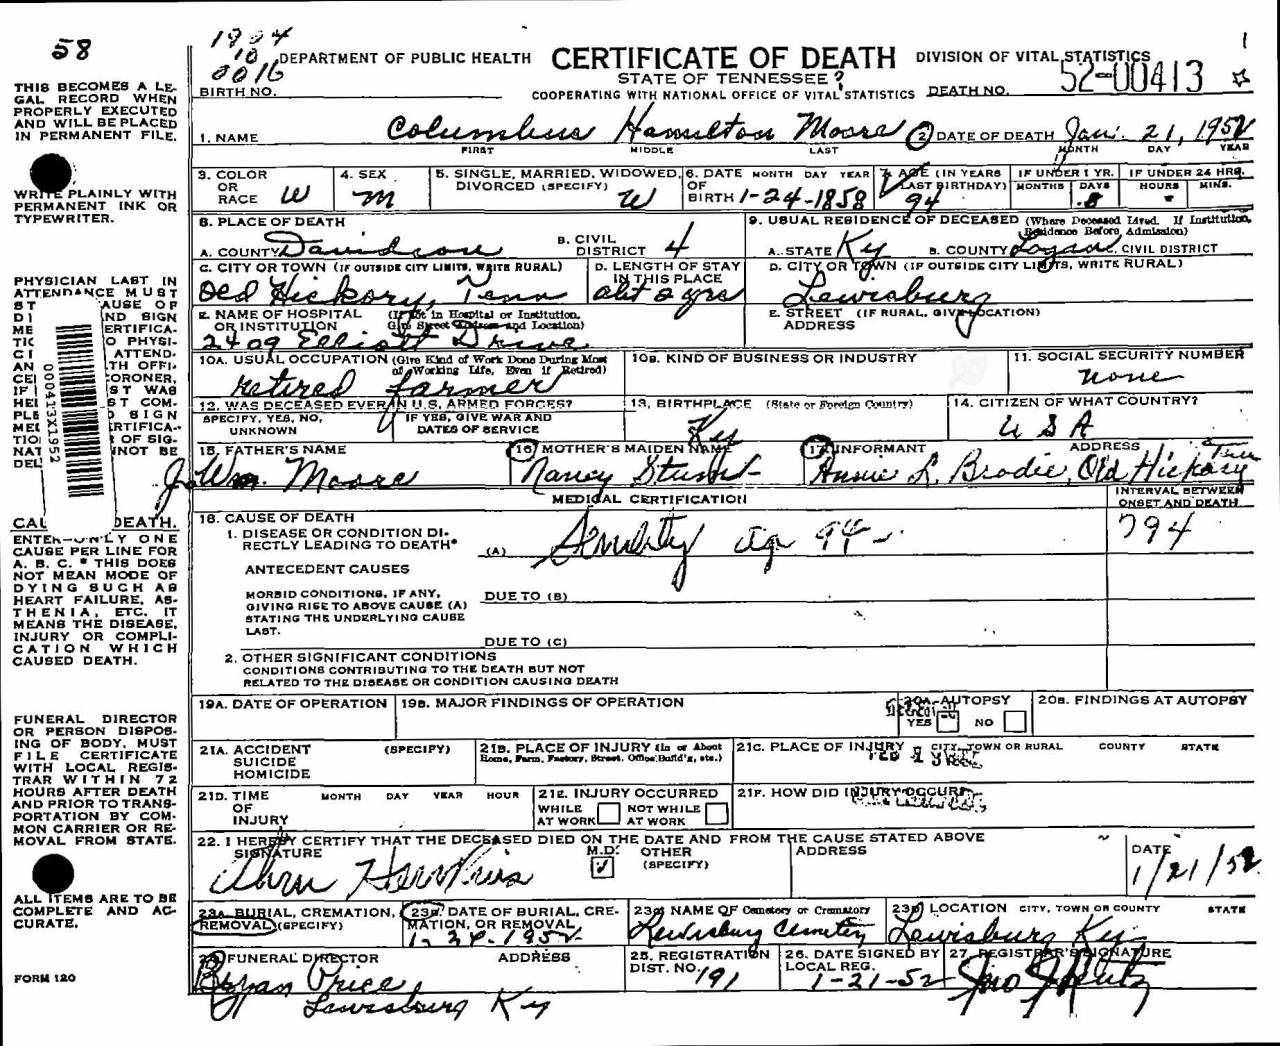 58
1904
10
0016
DEPARTMENT OF PUBLIC HEALTH CERTIFICATE OF DEATH DIVISION OF VITAL STATISTICS
STATE OF TENNESSEE
52-00413
BIRTH NO. COOPERATING WITH NATIONAL OFFICE OF VITAL STATISTICS DEATH NO.
1. NAME Columbus Hamilton Moore 2 DATE OF DEATH Jan. 21, 1952
FIRST MIDDLE LAST MONTH DAY YEAR
3. COLOR OR RACE W
4. SEX M
5. SINGLE, MARRIED, WIDOWED, DIVORCED (SPECIFY) W
6. DATE OF BIRTH MONTH DAY YEAR 1-24-1858
7. AGE (IN YEARS LAST BIRTHDAY) 94
IF UNDER 1 YR. MONTHS DAYS
IF UNDER 24 HRS. HOURS MINS.
8. PLACE OF DEATH
A. COUNTY Davidson B. CIVIL DISTRICT 4
9. USUAL RESIDENCE OF DECEASED (Where Deceased Lived. If Institution, Residence Before Admission)
A. STATE Ky B. COUNTY Logan C. CIVIL DISTRICT
C. CITY OR TOWN (IF OUTSIDE CITY LIMITS, WRITE RURAL) Old Hickory, Tenn
D. LENGTH OF STAY IN THIS PLACE abt 2 yrs
D. CITY OR TOWN (IF OUTSIDE CITY LIMITS, WRITE RURAL) Lewisburg
E. NAME OF HOSPITAL OR INSTITUTION (If not in Hospital or Institution, Give Street Address and Location) 2409 Elliott Drive
E. STREET ADDRESS (IF RURAL, GIVE LOCATION)
10A. USUAL OCCUPATION (Give Kind of Work Done During Most of Working Life, Even if Retired) retired farmer
10B. KIND OF BUSINESS OR INDUSTRY
11. SOCIAL SECURITY NUMBER none
12. WAS DECEASED EVER IN U.S. ARMED FORCES?
SPECIFY, YES, NO, UNKNOWN
IF YES, GIVE WAR AND DATES OF SERVICE
13. BIRTHPLACE (State or Foreign Country) Ky
14. CITIZEN OF WHAT COUNTRY? USA
15. FATHER'S NAME J. Wm. Moore
16 MOTHER'S MAIDEN NAME Nancy
17 INFORMANT ADDRESS Annie L. Brodie, Old Hickory Tenn
MEDICAL CERTIFICATION
INTERVAL BETWEEN ONSET AND DEATH
18. CAUSE OF DEATH
1. DISEASE OR CONDITION DIRECTLY LEADING TO DEATH* (A) Senility age 94 -
94
ANTECEDENT CAUSES
MORBID CONDITIONS, IF ANY, GIVING RISE TO ABOVE CAUSE (A) STATING THE UNDERLYING CAUSE LAST.
DUE TO (B)
DUE TO (C)
2. OTHER SIGNIFICANT CONDITIONS
CONDITIONS CONTRIBUTING TO THE DEATH BUT NOT
RELATED TO THE DISEASE OR CONDITION CAUSING DEATH
19A. DATE OF OPERATION
19B. MAJOR FINDINGS OF OPERATION
20A. AUTOPSY
YES NO
20B. FINDINGS AT AUTOPSY
21A. ACCIDENT SUICIDE HOMICIDE (SPECIFY)
21B. PLACE OF INJURY (In or About Home, Farm, Factory, Street, Office Build'g, etc.)
21C. PLACE OF INJURY CITY, TOWN OR RURAL COUNTY STATE
21D. TIME OF INJURY MONTH DAY YEAR HOUR
21E. INJURY OCCURRED
WHILE AT WORK NOT WHILE AT WORK
21F. HOW DID INJURY OCCUR?
22. I HEREBY CERTIFY THAT THE DECEASED DIED ON THE DATE AND FROM THE CAUSE STATED ABOVE
SIGNATURE M.D. OTHER (SPECIFY) ADDRESS DATE 1/21/52
23A. BURIAL, CREMATION, REMOVAL (SPECIFY)
23B. DATE OF BURIAL, CREMATION, OR REMOVAL 1-24-1952
23C NAME OF Cemetery or Crematory Lewisburg Cemetery
23D LOCATION CITY, TOWN OR COUNTY STATE Lewisburg Ky
24 FUNERAL DIRECTOR ADDRESS Bryan Price
Lewisburg Ky
25. REGISTRATION DIST. NO. 191
26. DATE SIGNED BY LOCAL REG. 1-21-52
27. REGISTRAR'S SIGNATURE
THIS BECOMES A LEGAL RECORD WHEN PROPERLY EXECUTED AND WILL BE PLACED IN PERMANENT FILE.
WRITE PLAINLY WITH PERMANENT INK OR TYPEWRITER.
PHYSICIAN LAST IN
ATTENDANCE MUST
000413X1952
ENTER ONLY ONE CAUSE PER LINE FOR A. B. C. * THIS DOES NOT MEAN MODE OF DYING SUCH AS HEART FAILURE, ASTHENIA, ETC. IT MEANS THE DISEASE, INJURY OR COMPLICATION WHICH CAUSED DEATH.
FUNERAL DIRECTOR OR PERSON DISPOSING OF BODY, MUST FILE CERTIFICATE WITH LOCAL REGISTRAR WITHIN 72 HOURS AFTER DEATH AND PRIOR TO TRANSPORTATION BY COMMON CARRIER OR REMOVAL FROM STATE.
ALL ITEMS ARE TO BE COMPLETE AND ACCURATE.
FORM 120